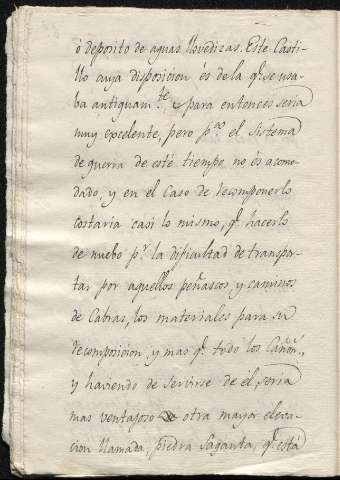 ò deposito de aguas llovedizas. Este Casti-
llo cuya disposicion és de la q.e se usa-
ba antiguam.te y para entonces seria
muy excelente, pero p.a el sistema
de guerra de esté tiempo no és acomo-
dado, y en el Caso de recomponerlo
costaria casi lo mismo, q.e hacerlo
de nuebo p.r la dificultad de transpor-
tar por aquellos peñascos, y caminos
de Cabras, los materiales para su
recomposicion, y mas q.e todo los Cañon.s
y haviendo de servirse de él, seria
mas ventajoso otra mayor eleva-
cion llamada, piedra Saganta, q.e está